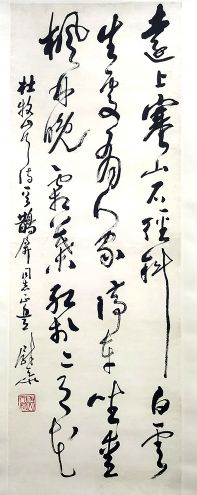 遠上寒山石徑斜白雲
生處有人家停車坐愛
楓林晚霜葉紅於二月花
杜牧山行詩 鵲屏同志正